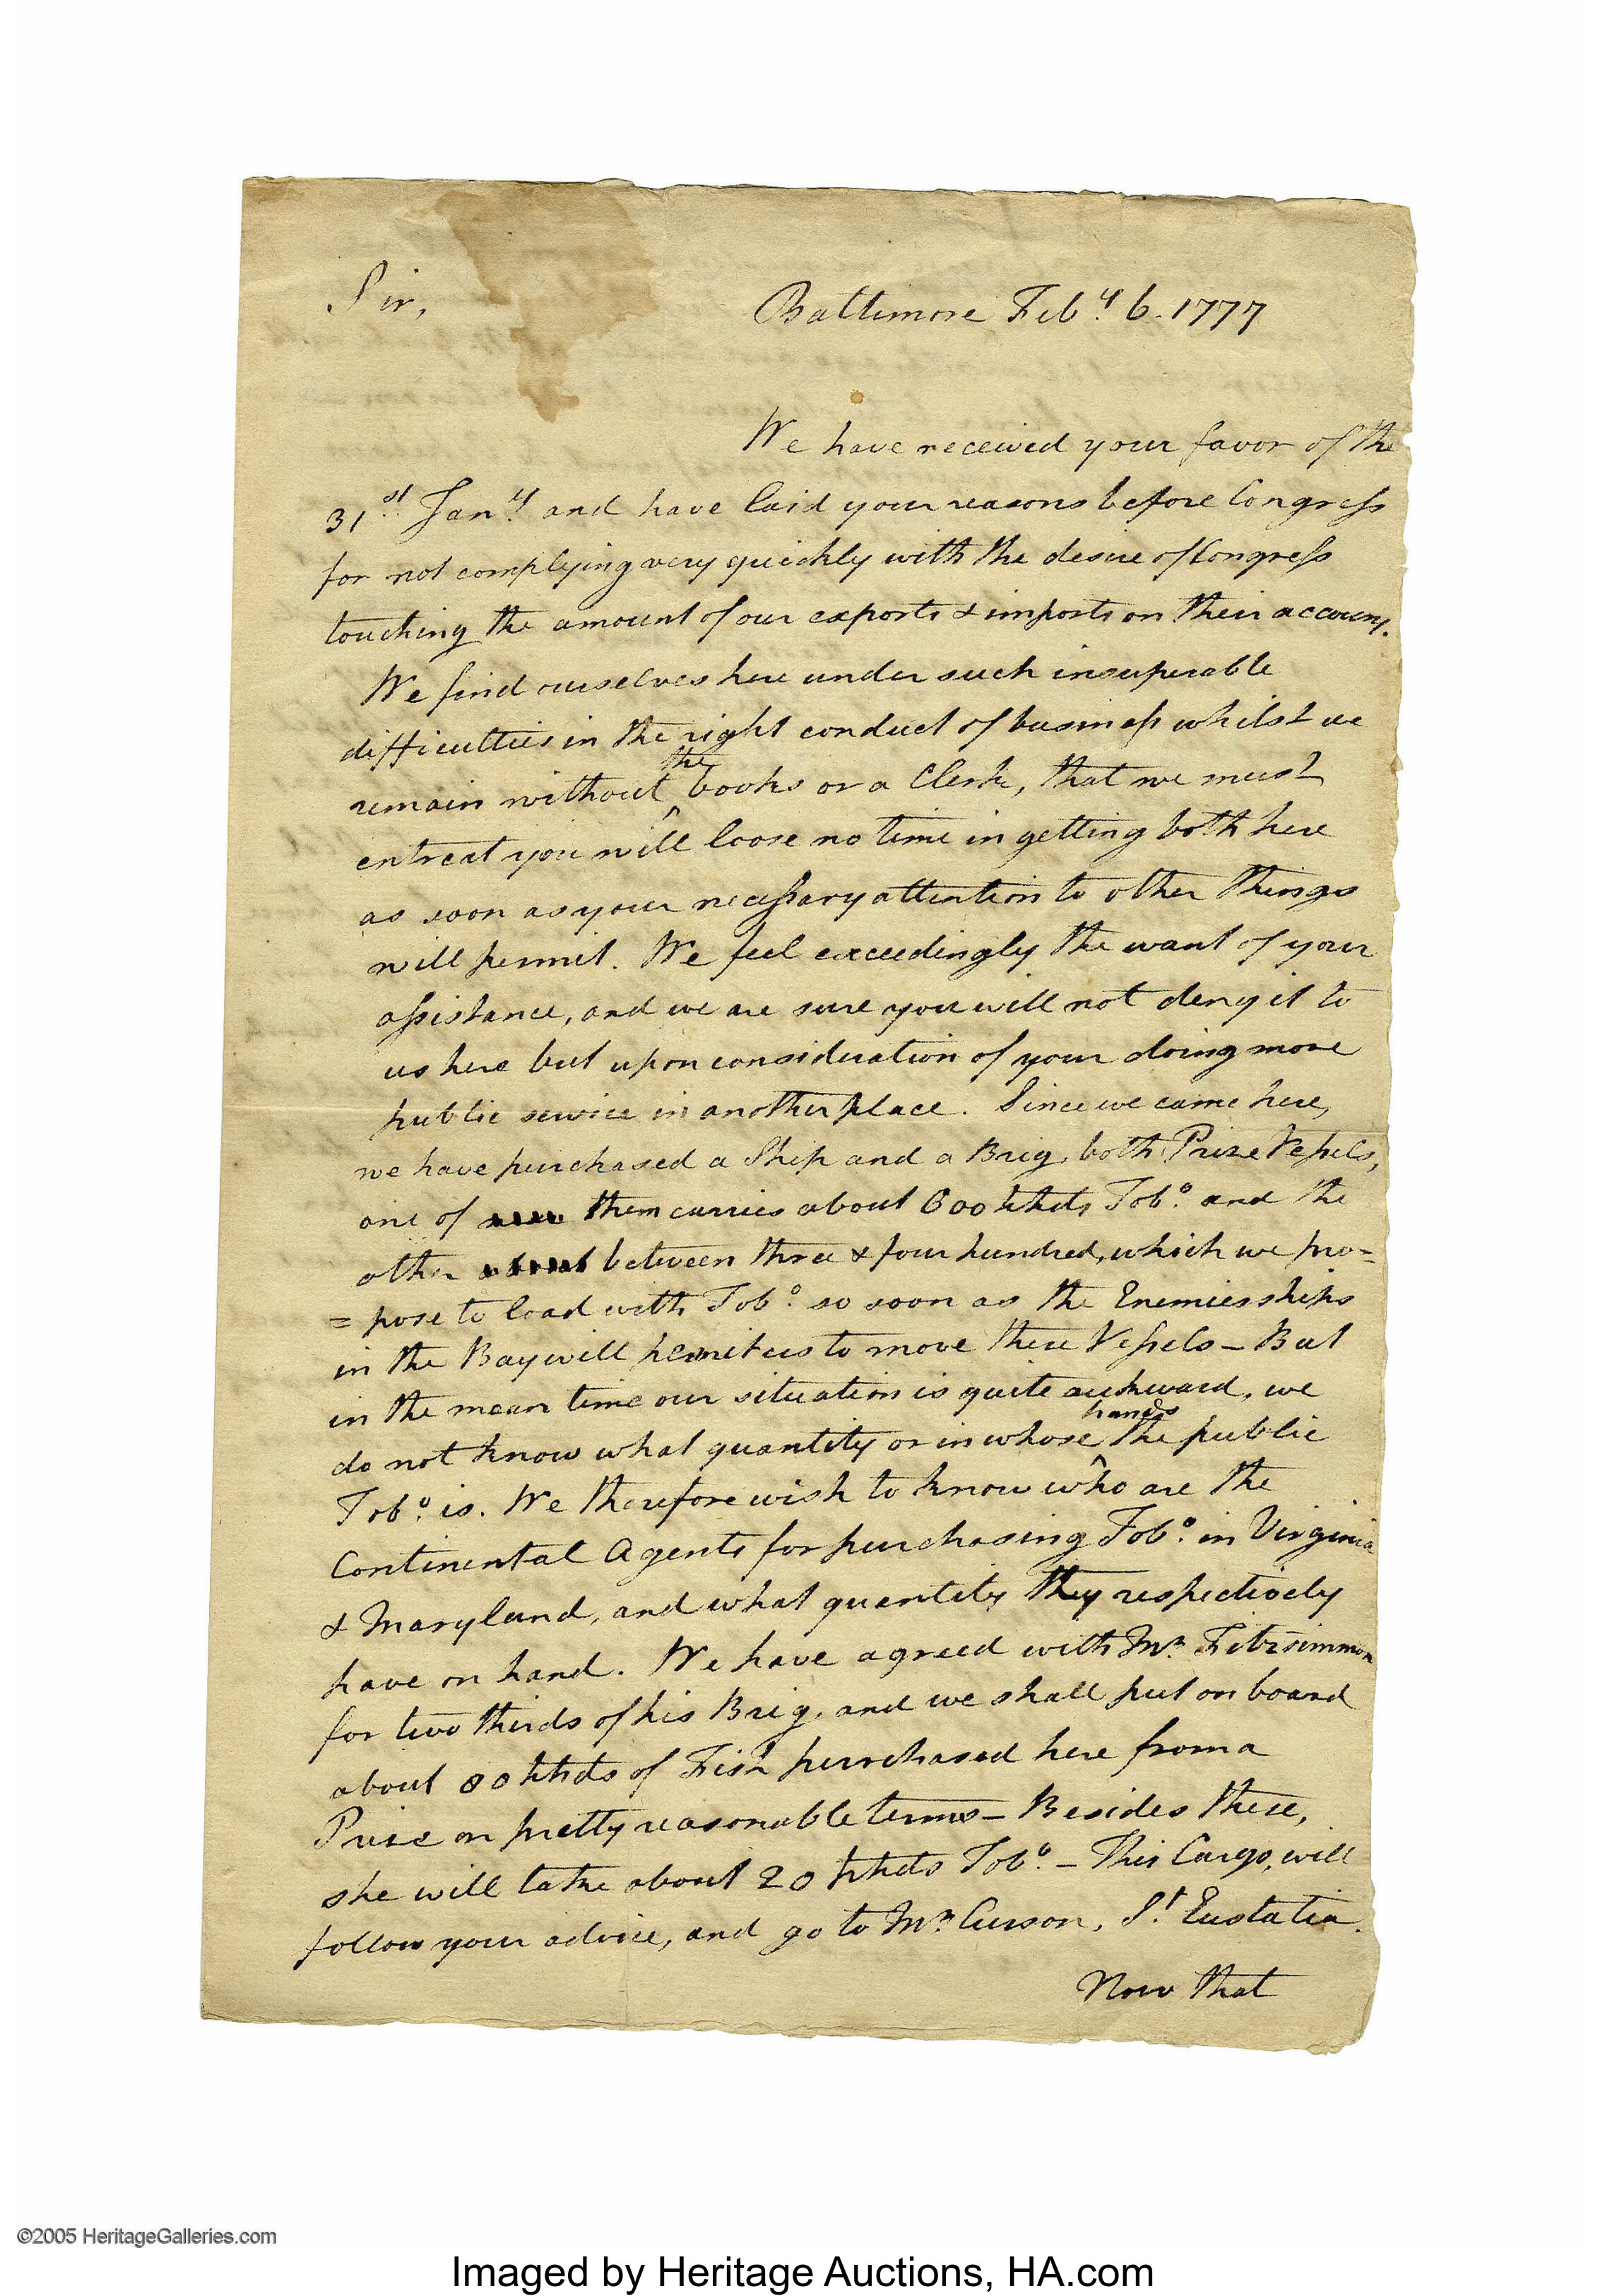 Sir,
Baltimore Feby. 6. 1777
We have received your favor of the
31st. Jany. and have laid your reasons before Congress
for not complying very quickly with the desire of Congress
touching the amount of our exports & imports on their account.
We find ourselves here under such insuperable
difficulties in the right conduct of business whilst we
remain without the books or a Clerk, that we must
entreat you will loose no time in getting both here
as soon as your necessary attention to other things
will permit. We feel exceedingly the want of your
assistance, and we are sure you will not deny it to
us here but upon consideration of your doing more
public service in another place. Since we came here,
we have purchased a Ship and a Brig, both Prize Vessels,
one of them carries about 600 hhds Tobo. and the
other between three & four hundred, which we pro=
=pose to load with Tobo. so soon as the Enemies ships
in the Bay will permit us to move these Vessels - But
in the mean time our situation is quite awkward, we
do not know what quantity or in whose hands the public
Tobo. is. We therefore wish to know who are the
Continental Agents for purchasing Tobo. in Virginia
& Maryland, and what quantity they respectively
have on hand. We have agreed with Mr. Fitzsimmon
for two thirds of his Brig, and we shall put on board
about 80 hhds of Fish purchased here from a
Prize on pretty reasonable terms - Besides these,
she will take about 20 hhds Tobo. - This Cargo, will
follow your advice, and go to Mr. Curson, St. Eustatia.
Now that
©2005 HeritageGalleries.com
Imaged by Heritage Auctions, HA.com